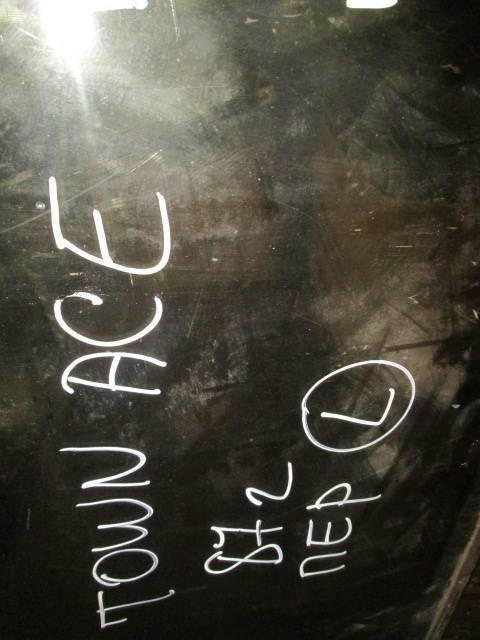 TOWN ACE
872
ПЕР L